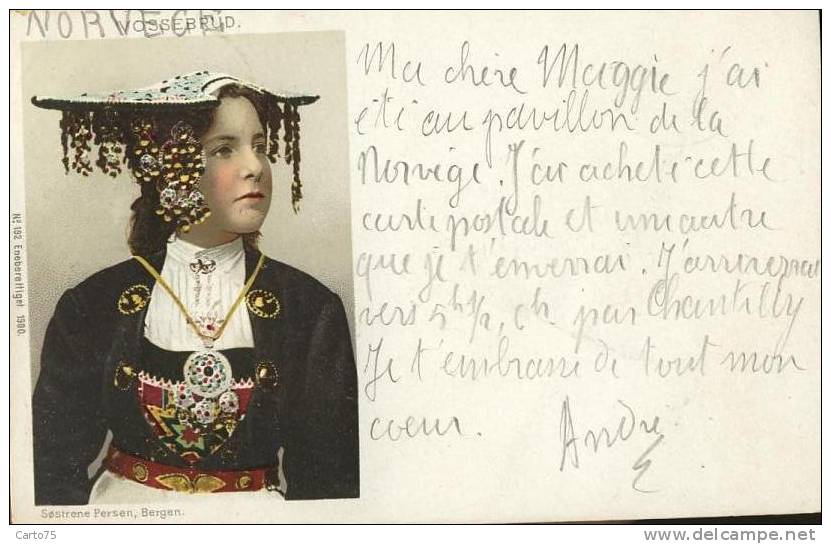 NORVEGE
VOSSEBRUD.
Ma chère Maggie j'ai
été au pavillon de la
Norvège. J'ai acheté cette
carte postale et une autre
que je t'enverrai. J'arriverai
vers 5h 1/2, ch. par Chantilly
Je t'embrasse de tout mon
coeur.
André
No 192 Eneberettiget 1900.
Søstrene Persen, Bergen.
Carto75
http://www.delcampe.net